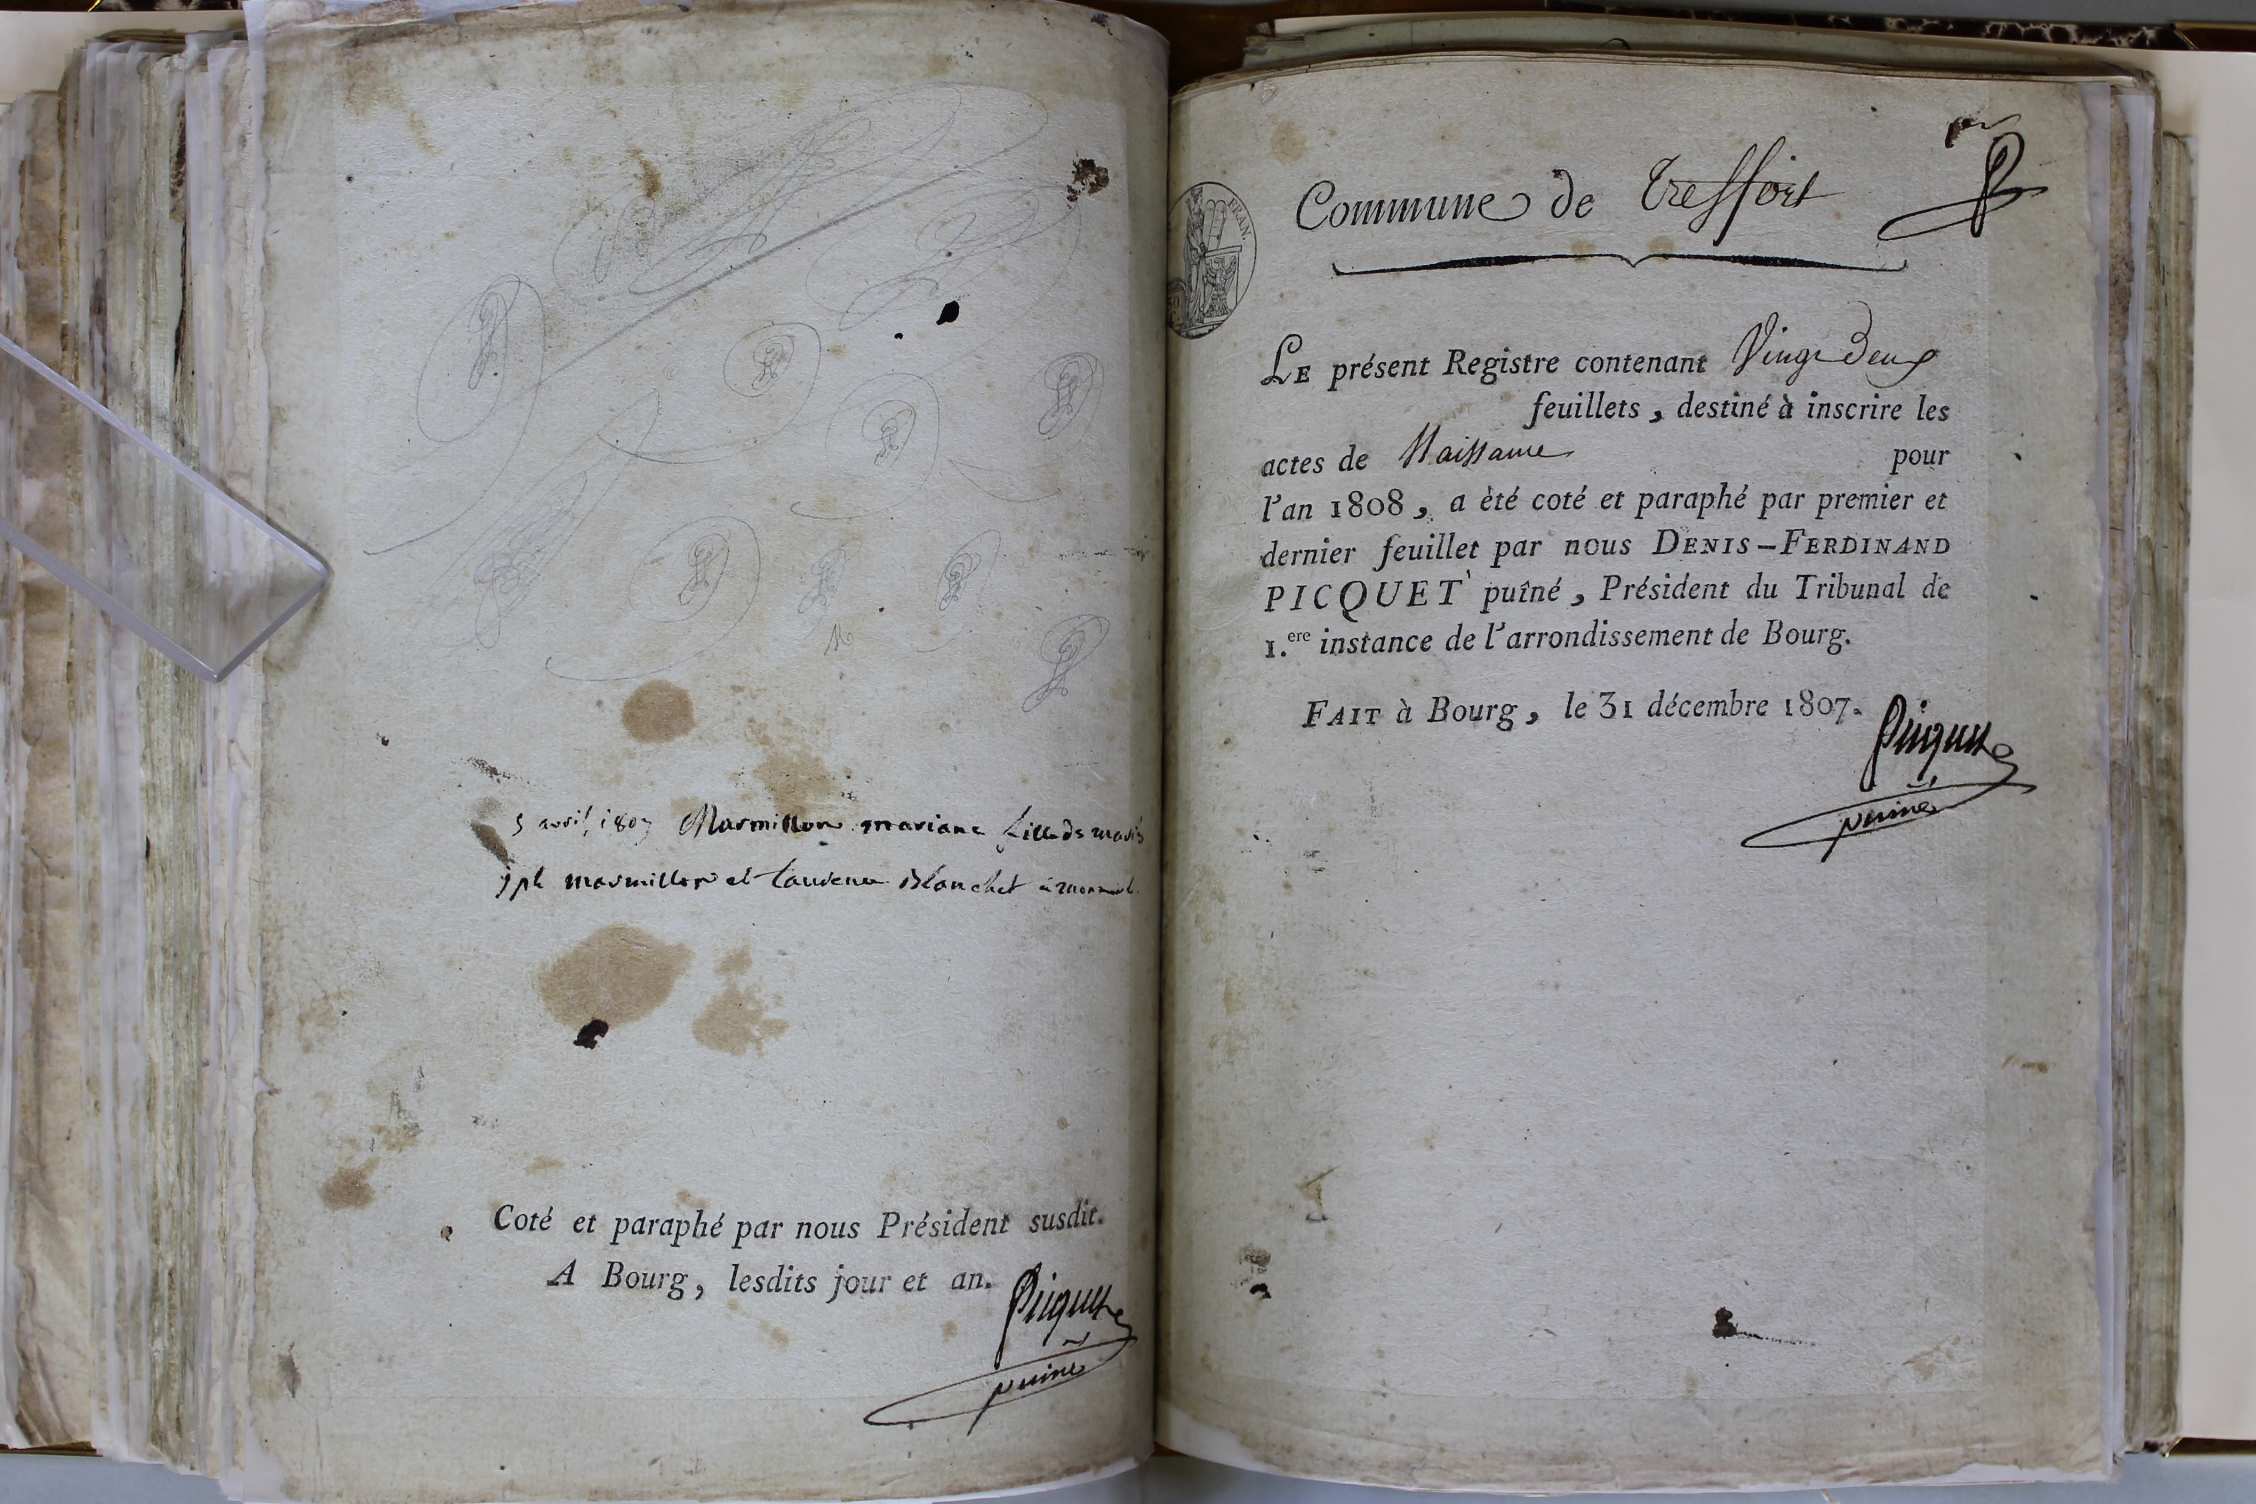 5 avril 1807 Marmillon mariane fille de mariés
jph marmillon et Laurence Blanchet à
Coté et paraphé par nous Président susdit.
A Bourg, lesdits jour et an.
Picquet
puiné
Commune de Treffort
FRAN.
LE présent Registre contenant Vingt Deux
feuillets, destiné à inscrire les
actes de Naissance pour
l'an 1808, a èté coté et paraphé par premier et
dernier feuillet par nous DENIS-FERDINAND
PICQUET puîné, Président du Tribunal de
1.ere instance de l'arrondissement de Bourg.
FAIT à Bourg, le 31 décembre 1807.
Picquet
puiné